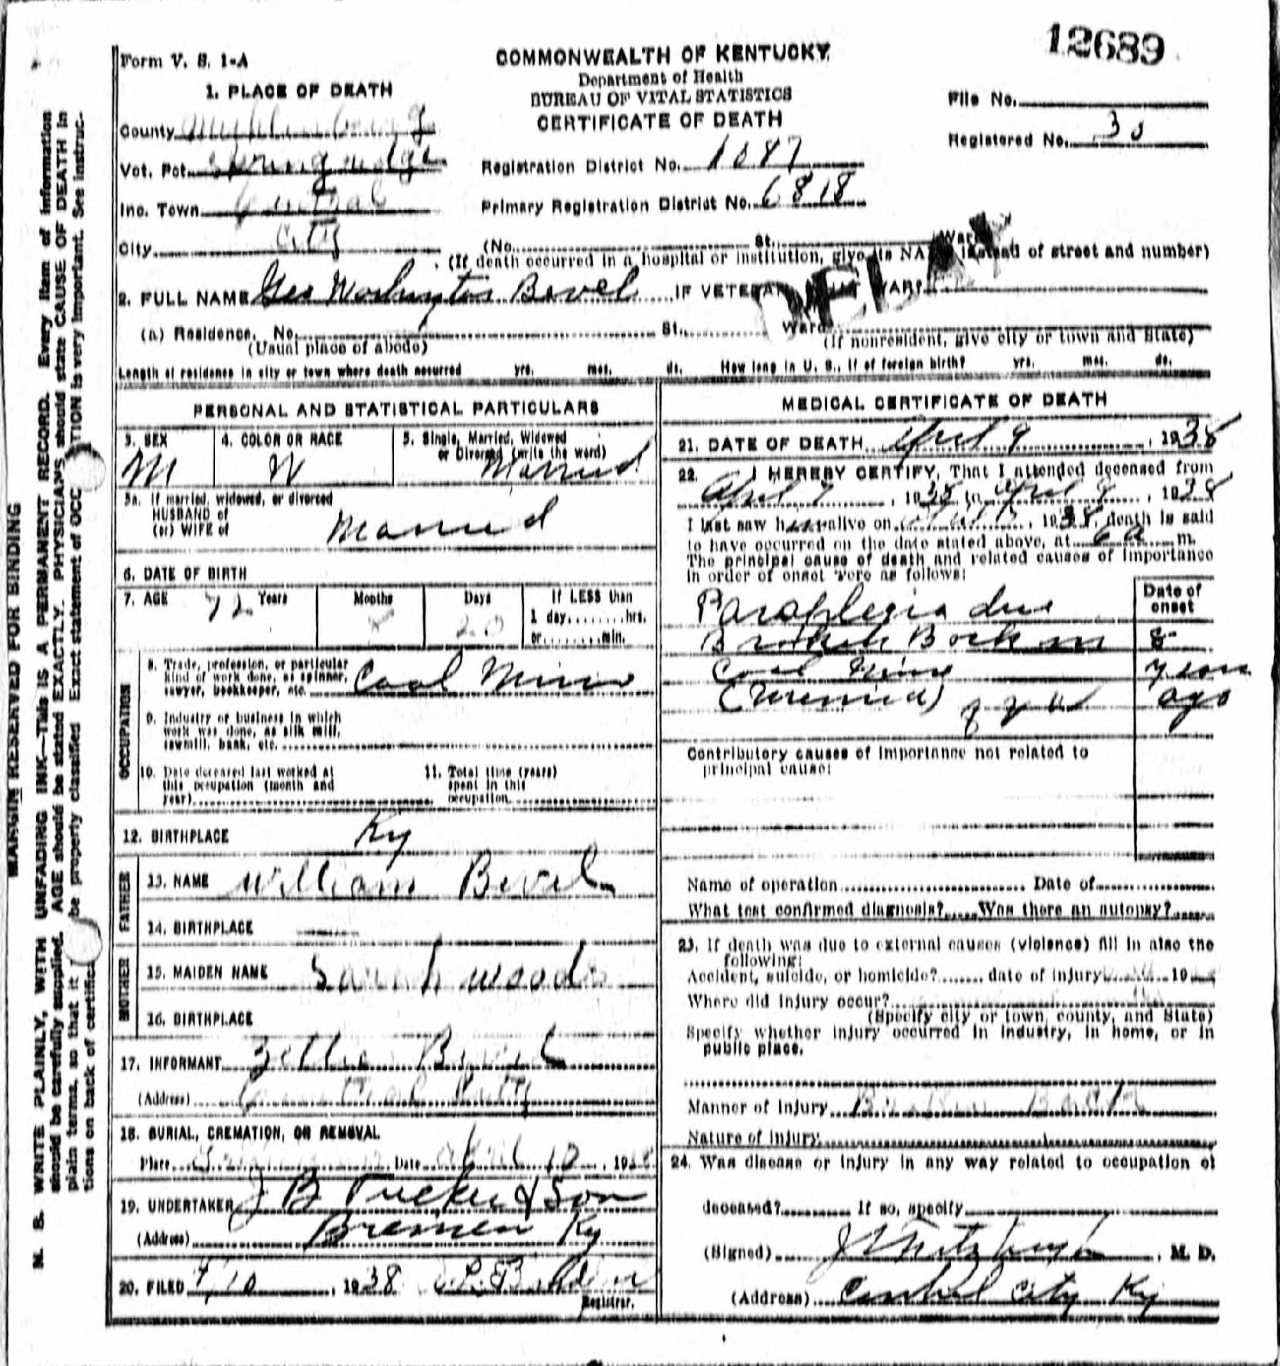 12689
Form V. S. 1-A
COMMONWEALTH OF KENTUCKY
Department of Health
BUREAU OF VITAL STATISTICS
CERTIFICATE OF DEATH
File No.
Registered No. 30
1. PLACE OF DEATH
County Muhlenberg
Vot. Pct.
Inc. Town Central
City City
Registration District No. 1087
Primary Registration District No. 6818
(No. St. Ward)
(If death occurred in a hospital or institution, give its NAME instead of street and number)
DELAY
2. FULL NAME Geo Washington Bevel IF VETERAN WHAT WAR?
(a) Residence, No. St. Ward
(Usual place of abode) (If nonresident, give city or town and State)
Length of residence in city or town where death occurred yrs. mos. ds. How long in U. S., if of foreign birth? yrs. mos. ds.
PERSONAL AND STATISTICAL PARTICULARS
3. SEX M
4. COLOR OR RACE W
5. Single, Married, Widowed
or Divorced (write the word) Married
5a. If married, widowed, or divorced
HUSBAND of
(or) WIFE of Married
6. DATE OF BIRTH
7. AGE 72 Years Months Days 20 If LESS than
1 day, hrs.
or min.
OCCUPATION
8. Trade, profession, or particular
kind of work done, as spinner,
sawyer, bookkeeper, etc. Coal Miner
9. Industry or business in which
work was done, as silk mill,
sawmill, bank, etc.
10. Date deceased last worked at
this occupation (month and
year)
11. Total time (years)
spent in this
occupation
12. BIRTHPLACE Ky
FATHER
13. NAME William Bevel
14. BIRTHPLACE
MOTHER
15. MAIDEN NAME Sarah Woods
16. BIRTHPLACE
17. INFORMANT Bevel
(Address) Central City
18. BURIAL, CREMATION, OR REMOVAL
Place Date April 10, 1938
19. UNDERTAKER J B Tucker & Son
(Address) Bremen Ky
20. FILED 4/10, 1938
Registrar.
MEDICAL CERTIFICATE OF DEATH
21. DATE OF DEATH April 9, 1938
22. I HEREBY CERTIFY, That I attended deceased from
April 7, 1938 to April 9, 1938
I last saw h alive on , 1938, death is said
to have occurred on the date stated above, at 6 a m.
The principal cause of death and related causes of importance
in order of onset were as follows:
Date of
onset
Paraplegia due
Broken Back in 8
Coal Mine years
(Uremia) ago
Contributory causes of importance not related to
principal cause:
Name of operation Date of
What test confirmed diagnosis? Was there an autopsy?
23. If death was due to external causes (violence) fill in also the
following:
Accident, suicide, or homicide? date of injury 19
Where did injury occur?
(Specify city or town, county, and State)
Specify whether injury occurred in industry, in home, or in
public place.
Manner of Injury Broken Back
Nature of Injury
24. Was disease or injury in any way related to occupation of
deceased? If so, specify
(Signed) , M. D.
(Address) Central City Ky
MARGIN RESERVED FOR BINDING
N. B. WRITE PLAINLY, WITH UNFADING INK—THIS IS A PERMANENT RECORD. Every item of information
should be carefully supplied. AGE should be stated EXACTLY. PHYSICIANS should state CAUSE OF DEATH in
plain terms, so that it be properly classified. Exact statement of OCCUPATION is very important. See instruc-
tions on back of certificate